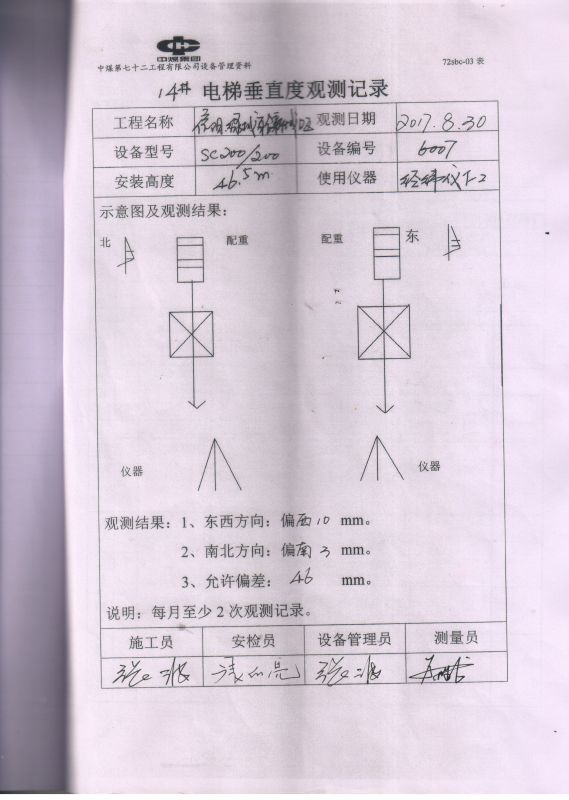 中煤集团
中煤第七十二工程有限公司设备管理资料
72sbc-03 表
14# 电梯垂直度观测记录
工程名称 观测日期 2017.8.30
设备型号 SC200/200 设备编号 6007
安装高度 46.5m 使用仪器 经纬仪J2
示意图及观测结果:
北 配重 配重 东
仪器 仪器
观测结果: 1、东西方向: 偏西 10 mm。
2、南北方向: 偏南 3 mm。
3、允许偏差: 46 mm。
说明: 每月至少 2 次观测记录。
施工员 安检员 设备管理员 测量员